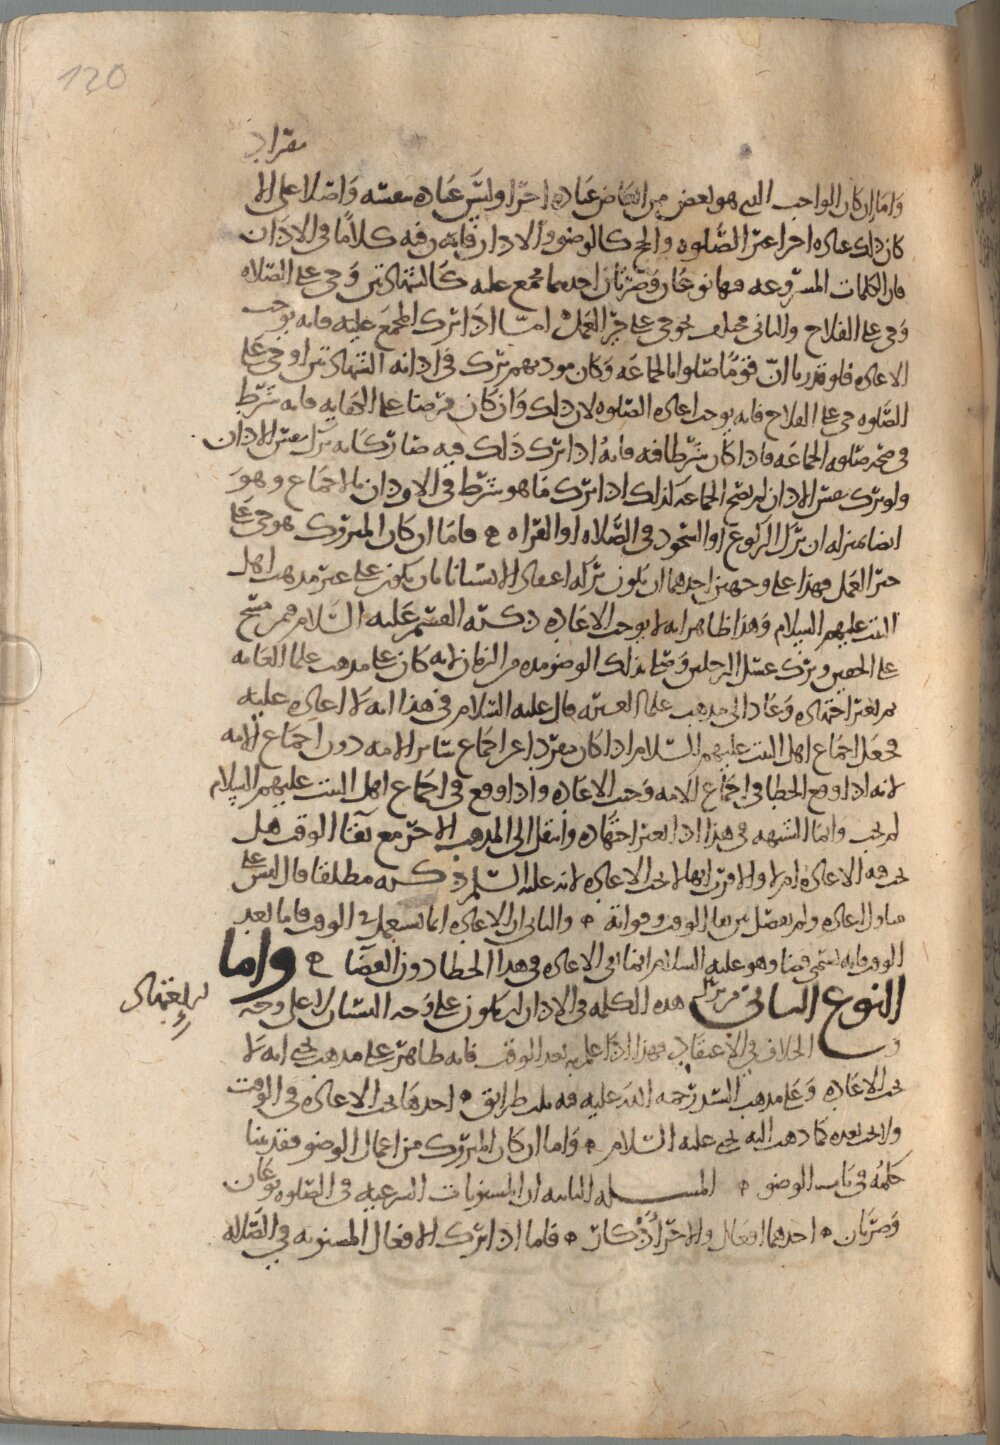 120
واما ان كان الواجب الذي هو بعض من ابعاض عبادة اخرا وليس عبادة بنفسه واصلا على الا
كان ذلك عباده اخرا غير الصلوه والحج كالوضو والاذان فانه فيه كلاما في الاذان
فان الكلمات المشروعه فيها نوعان وضربان احدهما مجمع عليه كالشهادتين وحي على الصلاه
وحي على الفلاح والثاني مختلف نحو حي على خير العمل امّا اذا ترك المجمع عليه فانه يوجب
الاعاده فلو قدرنا انّ قومًا صلوا بالجماعه وكان موذنهم ترك في اذانه الشهادتين او حي على
الصلوه حي على الفلاح فانه يوجب اعاده الصلوه لان ذلك وان كان فرضا على الكفايه فانه شرط
في صحه صلوه الجماعه فاذا كان شرطا فيه فانه اذا ترك ذلك فيه صار كانه ترك نفس الاذان
ولو ترك نفس الاذان لم تصح الجماعه كذلك اذا ترك ما هو شرط في الاذان بالاجماع وهو
ايضا بمنزله ان ترك الركوع او السجود في الصلاه او القراه ه فاما ان كان المتروك هو حي على
خير العمل فهذا على وجهين احدهما ان يكون تركه اعتقاد الانسان بان يكون على غير مذهب اهل
البيت عليهم السلام وهذا ظاهر انه لا يوجب الاعاده ذكره القسم عليه السلام فمن مسح
على الخفين وترك غسل الرجلين وصلى بذلك الوضو مده من الزمان لانه كان على مذهب علما العامه
ثم تغير اجتهاده وعاد الى مذهب علما العتره قال عليه السلام في هذا انه لا اعاده عليه
فجعل اجماع اهل البيت عليهم السلام اذا كان مفردا عن اجماع سائر الامه دون اجماع الامه
لانه اذا وقع الخطا في اجماع الامه وجب الاعاده واذا وقع في اجماع اهل البيت عليهم السلام
لم يجب وانما الشبهه في هذا اذا تغير اجتهاده وانتقل الى المذهب الاخر مع بقا الوقت هل
يجب فيه الاعاده ام لا والاقرب انها لا يجب الاعاده لانه عليه السلم ذكره مطلقا قال ليس على
الاعاده ولم يفصل بين بقا الوقت وفواته ه والثاني ان الاعاده انما تستعمل في الوقت فاما بعد
الوقت فانه يسمى قضا وهو عليه السلام انما نفى الاعاده في هذا الخطا دون القضا ه واما
النوع الثاني هذه الكلمه في الاذان ان يكون على وجه النسيان لا على وجه
الخلاف في الاعتقاد فهذا اذا علم به بعد الوقت فانه ظاهر على مذهب يحيى انه لا
يجب الاعاده وعلى مذهب السيد رحمه الله عليه فيه ثلث طرايق ه احدها يجب الاعاده في الوقت
ولا يجب بعده كما ذهب اليه يحيى عليه السلام ه واما ان كان المتروك من اعمال الوضو فقد بينا
حكمه في باب الوضو ه المسئله الثانيه ان المسنونات الشرعيه في الصلوه نوعان
وضربان ه احدهما افعال والاخر اذكار ه فاما اذا ترك الافعال المسنونه في الصلاه